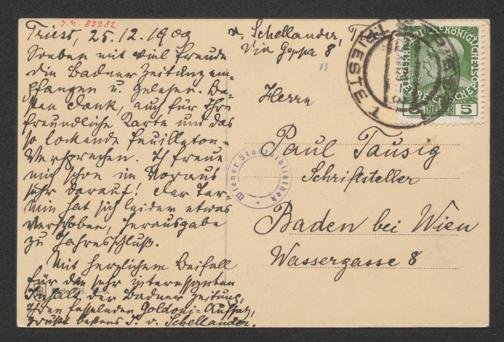 J.N. 83282
Triest, 25.12.1909
Soeben mit viel Freude
die Badner Zeitung em-
pfangen u. gelesen. Be-
sten Dank, auch für Ihre
freundliche Karte und das
so lockende Feuilleton-
Versprechen. Ich freue
mich schon im Voraus
sehr darauf! Der Ter-
min hat sich leider etwas
verschoben, Herausgabe
zu Jahresschluß.
Mit herzlichem Beifall
für den sehr interessanten
Inhalt der Badner Zeitung,
den fesselnden Goldoni-Aufsatz,
grüßt bestens I. v. Schellander.
Schellander,
Via Geppa 8
13
Herrn
Paul Tausig
Schriftsteller
Baden bei Wien
Wassergasse 8
Wiener Stadtbibliothek
TRIEST 3
5